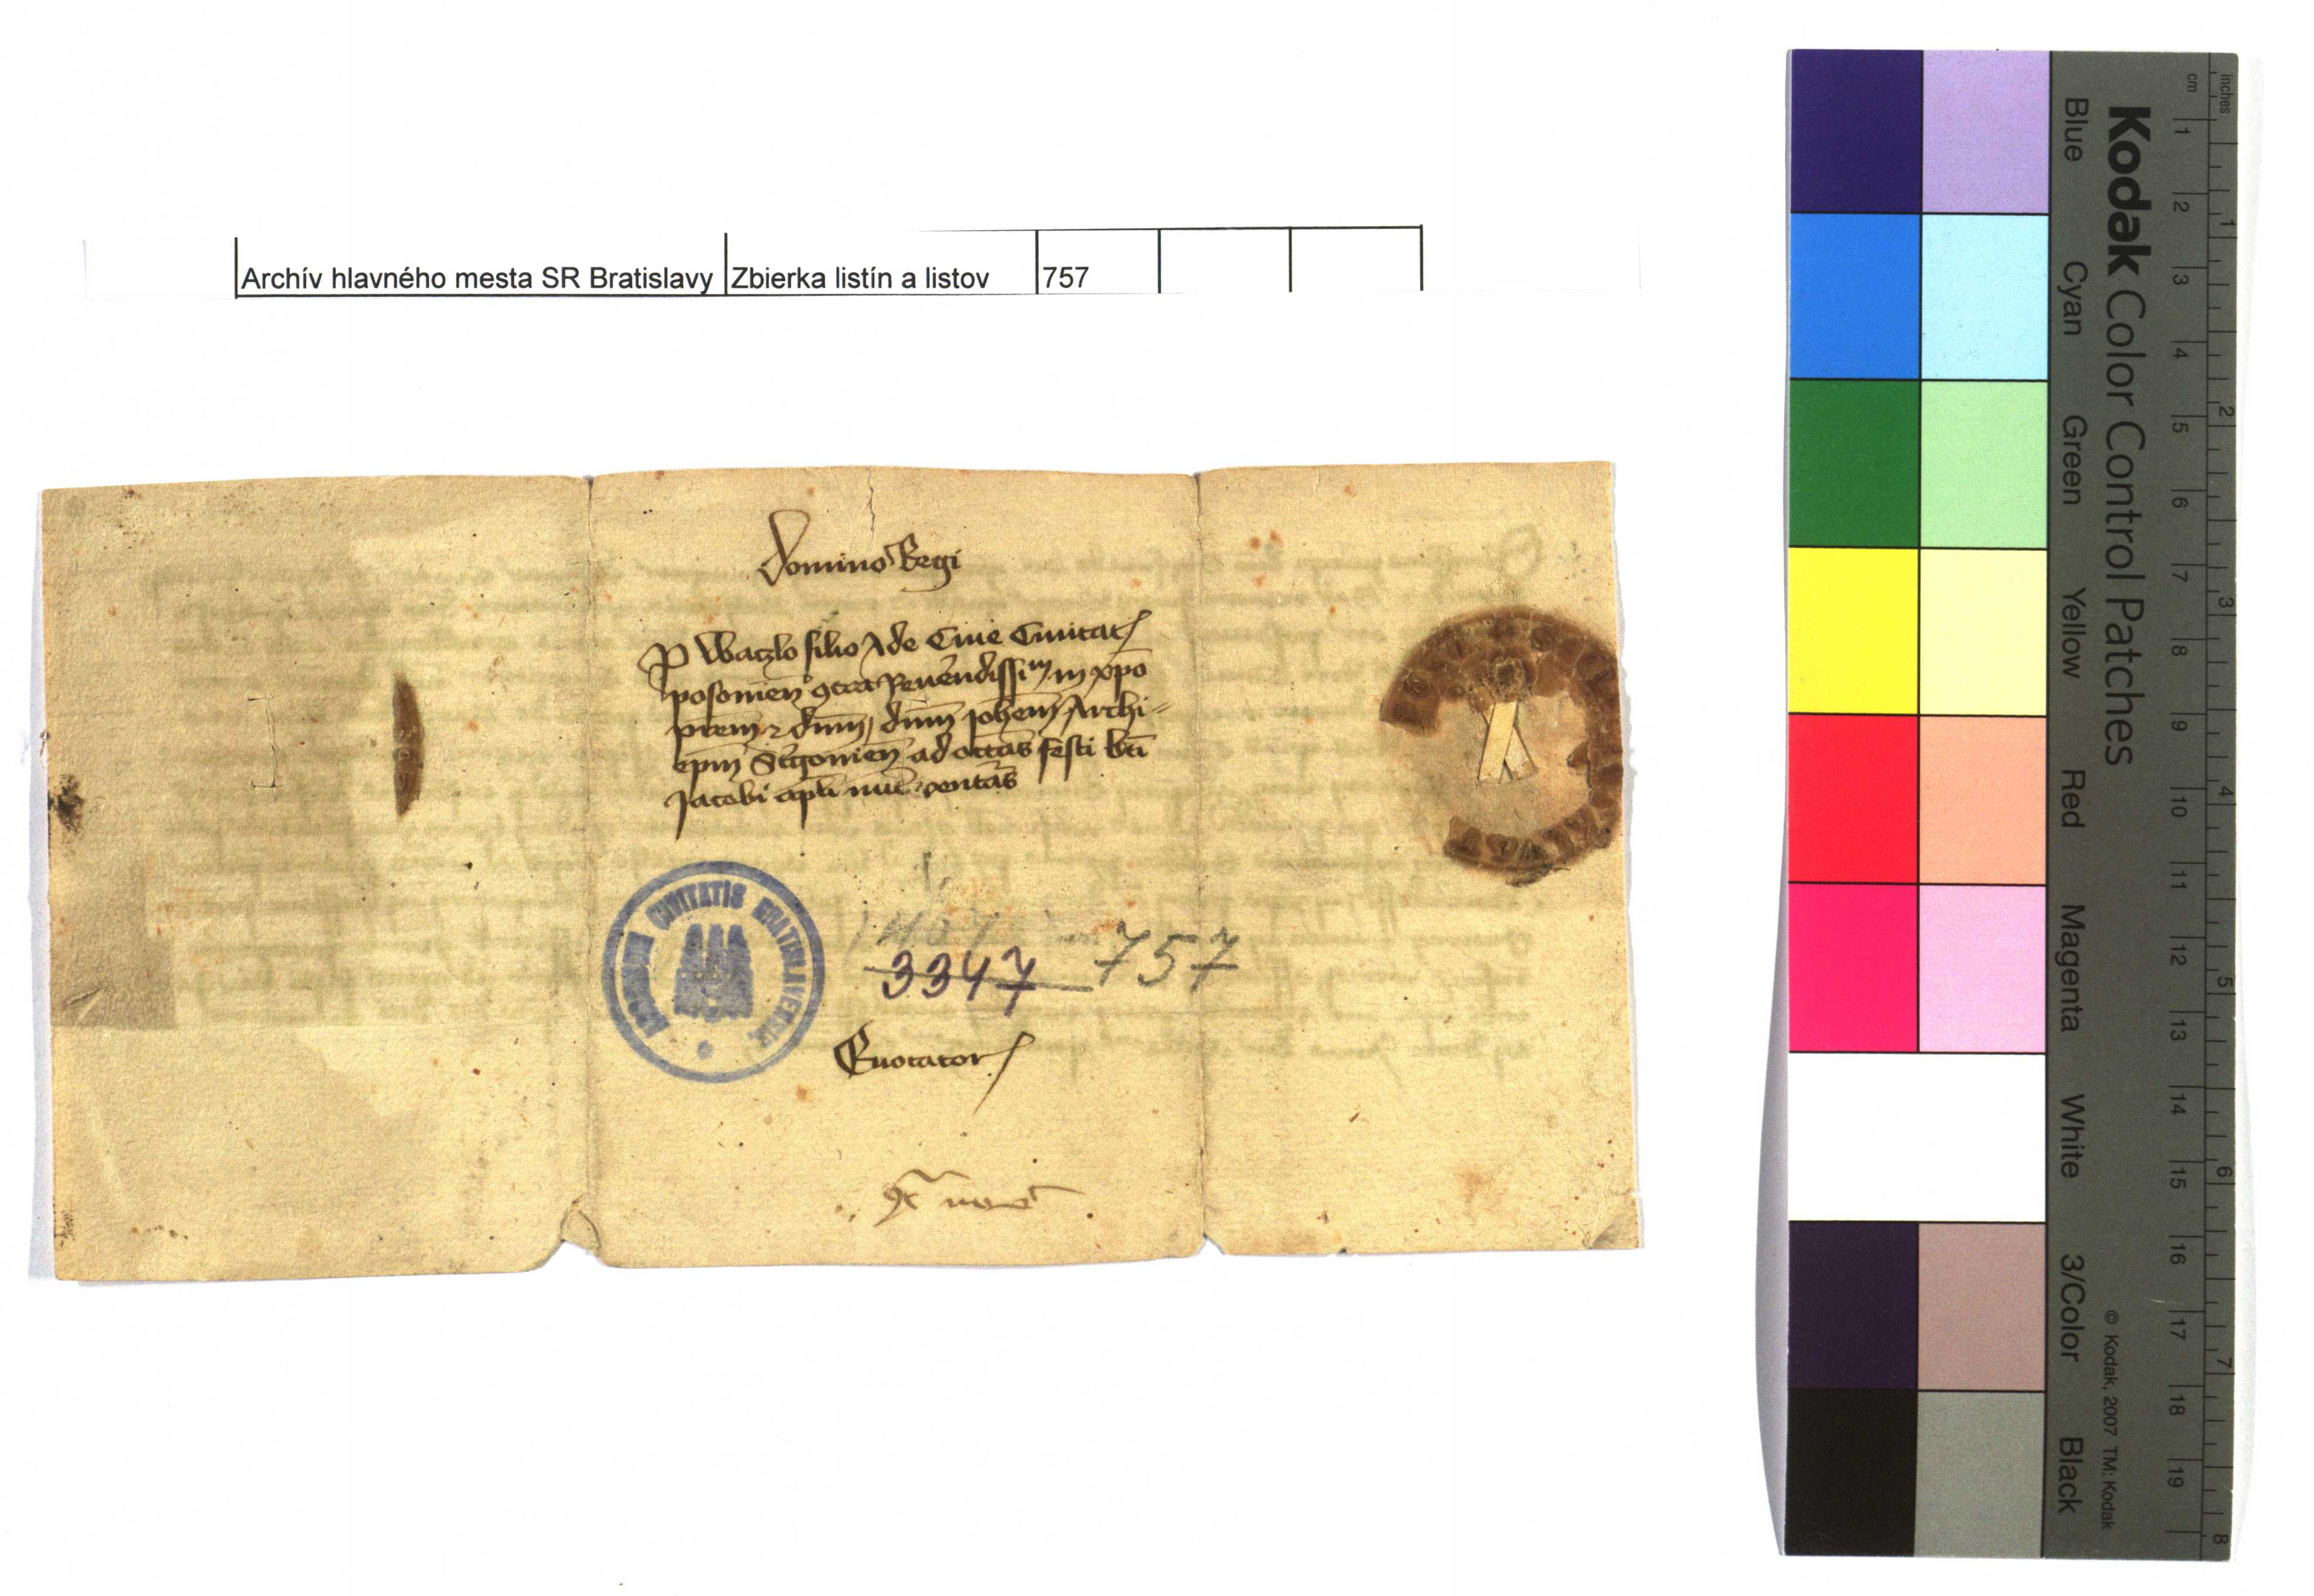 Archív hlavného mesta SR Bratislavy Zbierka listín a listov 757
Domino Regi
P Waczlo filio Ade Ciue Ciuitat
posonien 9tra Reuerendissim in xpo
prem ⁊ dnm dnm Johem Archi-
epm Strigonien ad octas festi bti
Jacobi apli nuc venturas
ARCHIVUM CIVITATIS BRATISLAVENSIS
3347 757
Euocator
inches
cm
1 2 3 4 5 6 7 8 9 10 11 12 13 14 15 16 17 18 19
1 2 3 4 5 6 7 8
Kodak Color Control Patches
© Kodak, 2007 TM: Kodak
Blue Cyan Green Yellow Red Magenta White 3/Color Black